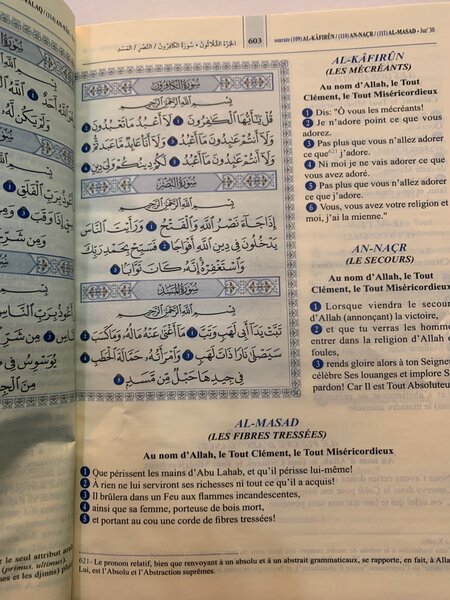 الجزء الثلاثون - سورة الكافرون / النصر / المسد
603
sourate (109) AL-KÂFIRÛN / (110) AN-NAÇR / (111) AL-MASAD - Juz' 30
سُورَةُ الكَافِرُونَ
بِسْمِ اللَّهِ الرَّحْمَٰنِ الرَّحِيمِ
قُلْ يَٰٓأَيُّهَا ٱلْكَٰفِرُونَ 1 لَآ أَعْبُدُ مَا تَعْبُدُونَ 2
وَلَآ أَنتُمْ عَٰبِدُونَ مَآ أَعْبُدُ 3 وَلَآ أَنَا۠ عَابِدٌ مَّا عَبَدتُّمْ 4
وَلَآ أَنتُمْ عَٰبِدُونَ مَآ أَعْبُدُ 5 لَكُمْ دِينُكُمْ وَلِىَ دِينِ 6
سُورَةُ النَّصْرِ
بِسْمِ اللَّهِ الرَّحْمَٰنِ الرَّحِيمِ
إِذَا جَآءَ نَصْرُ ٱللَّهِ وَٱلْفَتْحُ 1 وَرَأَيْتَ ٱلنَّاسَ
يَدْخُلُونَ فِى دِينِ ٱللَّهِ أَفْوَاجًا 2 فَسَبِّحْ بِحَمْدِ رَبِّكَ
وَٱسْتَغْفِرْهُ إِنَّهُۥ كَانَ تَوَّابًۢا 3
سُورَةُ المَسَدِ
بِسْمِ اللَّهِ الرَّحْمَٰنِ الرَّحِيمِ
تَبَّتْ يَدَآ أَبِى لَهَبٍ وَتَبَّ 1 مَآ أَغْنَىٰ عَنْهُ مَالُهُۥ وَمَا كَسَبَ 2
سَيَصْلَىٰ نَارًا ذَاتَ لَهَبٍ 3 وَٱمْرَأَتُهُۥ حَمَّالَةَ ٱلْحَطَبِ 4
فِى جِيدِهَا حَبْلٌ مِّن مَّسَدٍۭ 5
AL-KÂFIRÛN
(LES MÉCRÉANTS)
Au nom d'Allah, le Tout
Clément, le Tout Miséricordieux
1 Dis: "Ô vous les mécréants!
2 Je n'adore point ce que vous
adorez.
3 Pas plus que vous n'allez adorer
ce que621 j'adore.
4 Ni moi je ne vais adorer ce que
vous avez adoré.
5 Pas plus que vous n'allez adorer
ce que j'adore.
6 Vous, vous avez votre religion et
moi, j'ai la mienne."
AN-NAÇR
(LE SECOURS)
Au nom d'Allah, le Tout
Clément, le Tout Miséricordieux
1 Lorsque viendra le secours
d'Allah (annonçant) la victoire,
2 et que tu verras les hommes
entrer dans la religion d'Allah
foules,
3 rends gloire alors à ton Seigneur
célèbre Ses louanges et implore
pardon! Car Il est Tout Absoluteur
AL-MASAD
(LES FIBRES TRESSÉES)
Au nom d'Allah, le Tout Clément, le Tout Miséricordieux
1 Que périssent les mains d'Abu Lahab, et qu'il périsse lui-même!
2 À rien ne lui serviront ses richesses ni tout ce qu'il a acquis!
3 Il brûlera dans un Feu aux flammes incandescentes,
4 ainsi que sa femme, porteuse de bois mort,
5 et portant au cou une corde de fibres tressées!
621- Le pronom relatif, bien que renvoyant à un absolu et à un abstrait grammaticaux, se rapporte, en fait, à
Lui, est l'Absolu et l'Abstraction suprêmes.